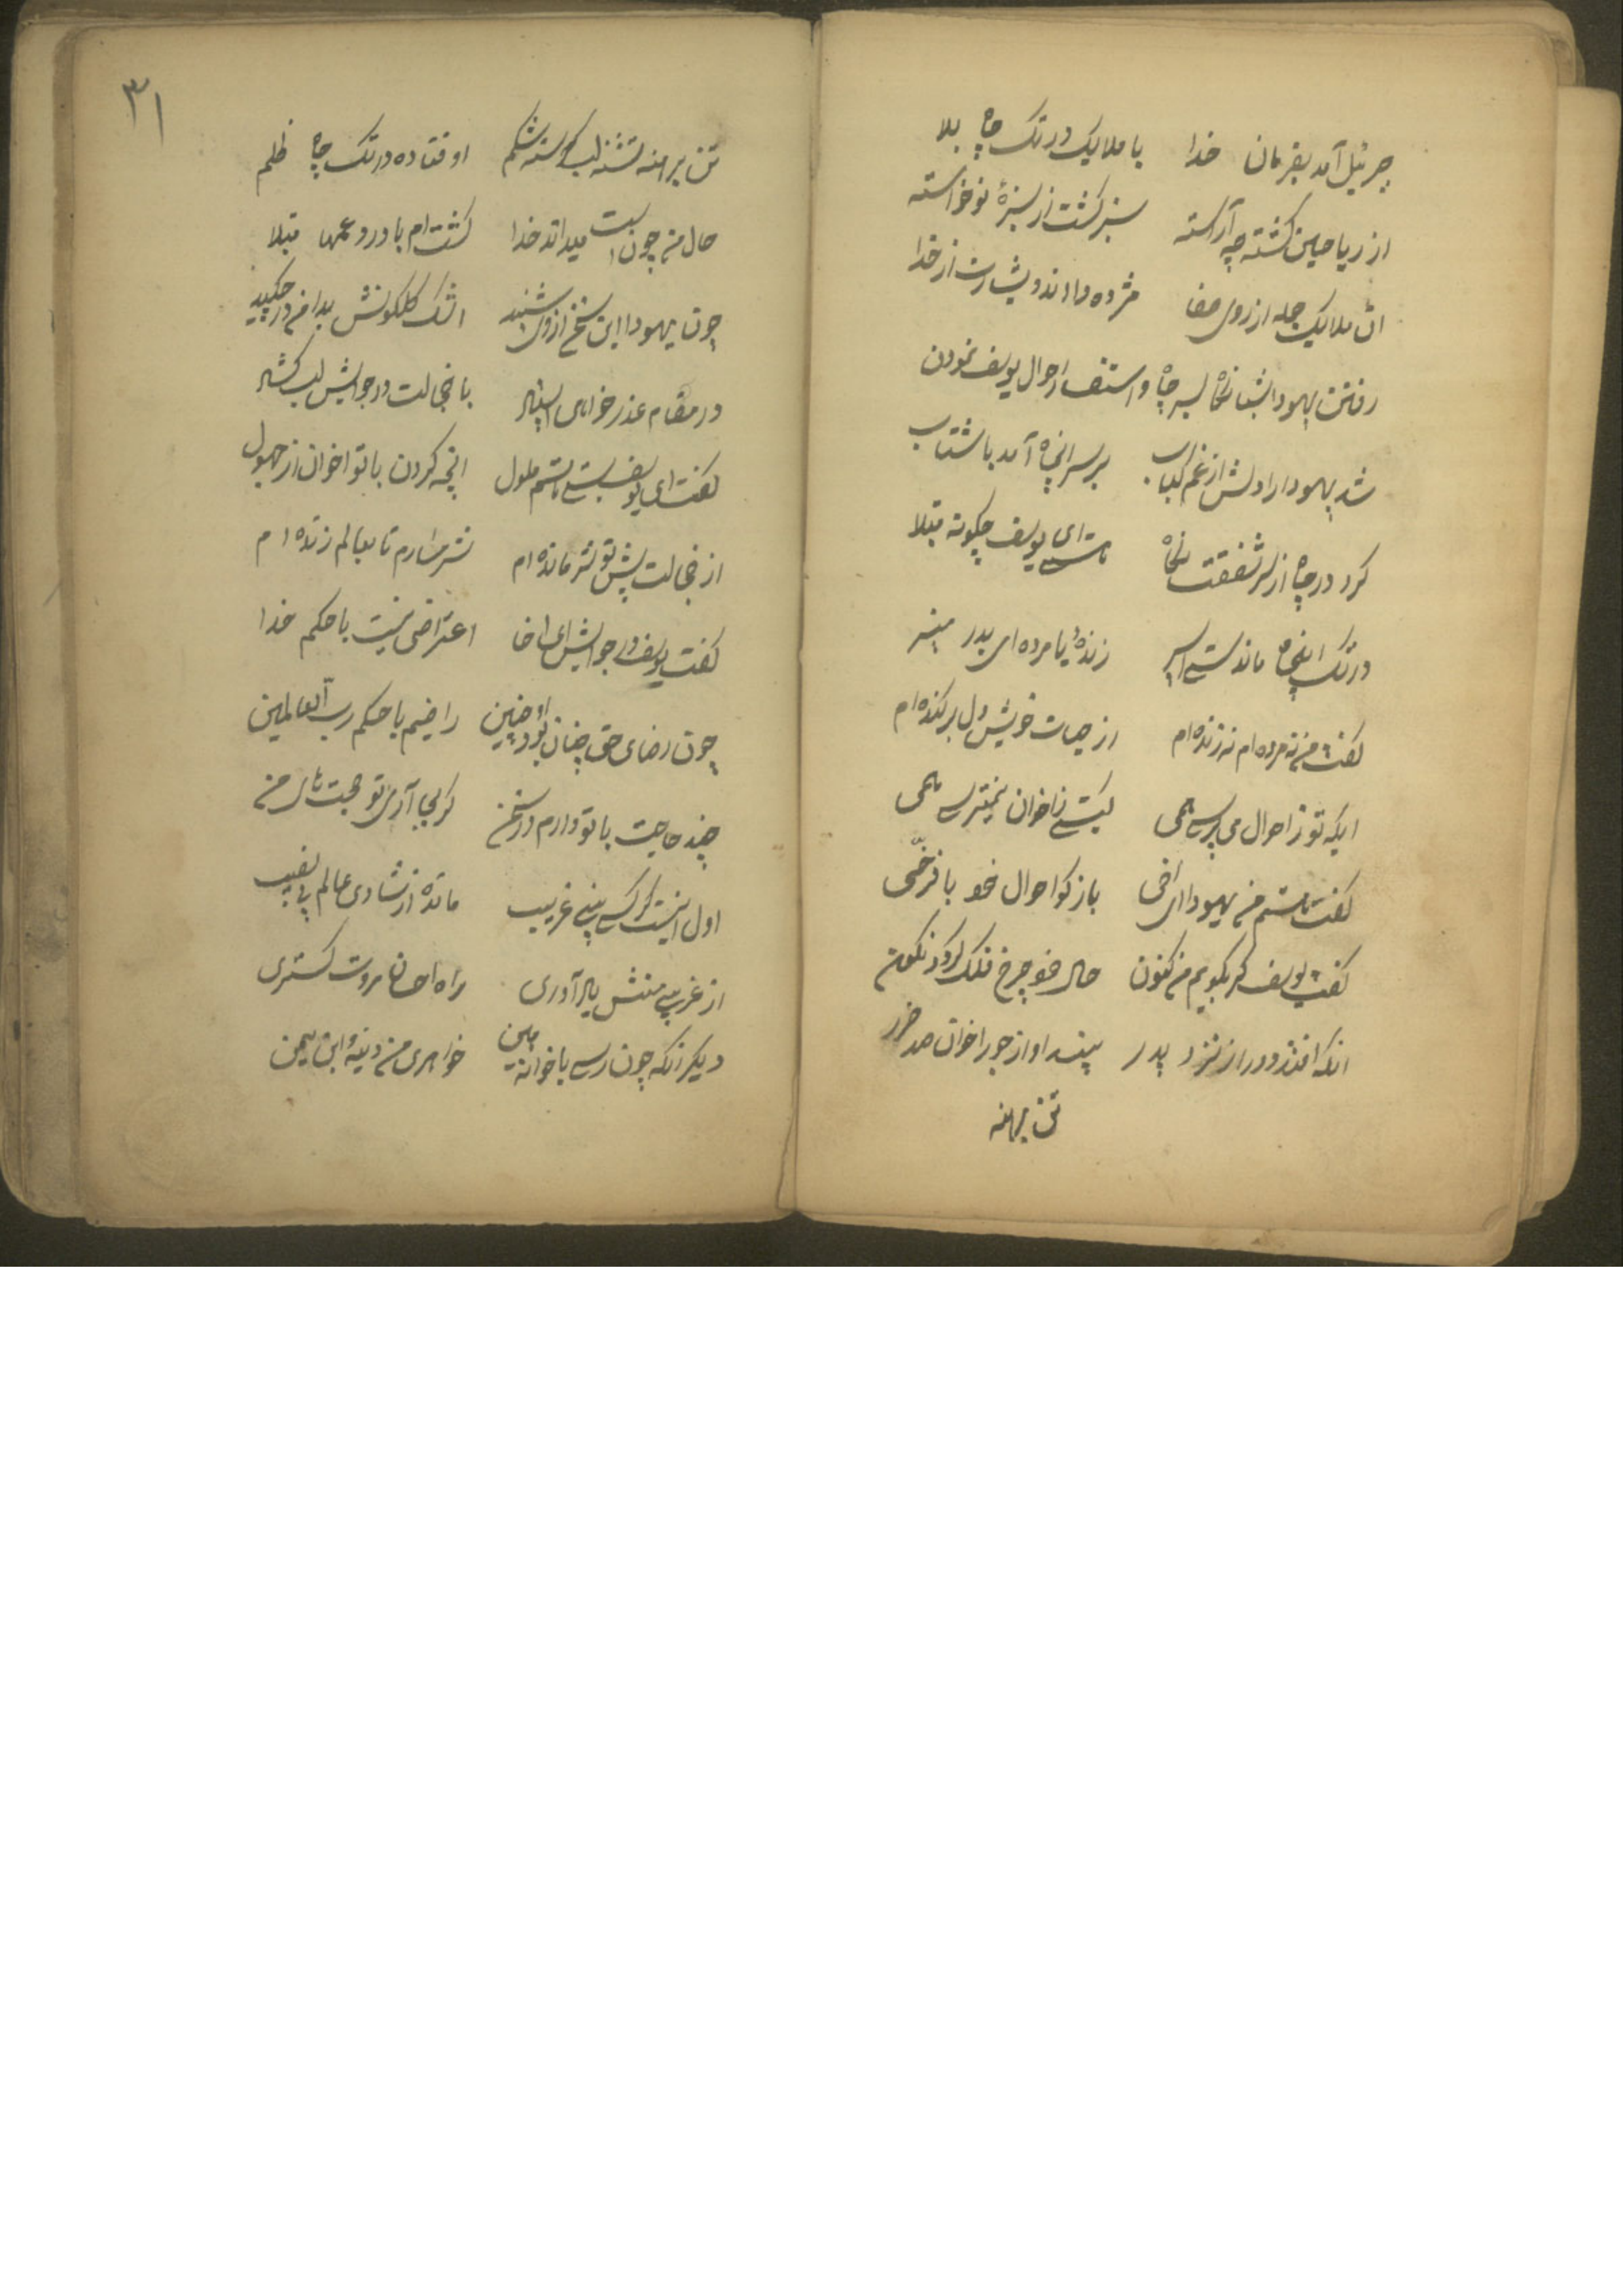 جبرئیل آمد بفرمان خدا با ملایک در تک چاه بلا
از ریاحین کشته چه آراسته سبز کشت از سبزهٔ نوخواسته
ان ملایک جمله از روی صفا مژده دادند و بشارت از خدا
رفتن یهودا شبانکاه بسر چاه و استفسار احوال یوسف نمودن
شد یهودا را دلش از غم کباب بر سر انچاه آمد با شتاب
کرد در چاه از سر شفقت نکاه کای یوسف چکونه مبتلا
در تک اینچاه ماندستی اسیر زندهٔ یا مرده ای بدر منیر
کفت من نه مرده ام نه زنده ام از حیات خویش دل برکنده ام
ایکه تو ز احوال می پرسی همی کیستی ز اخوان نمیترسی همی
کفت هستم من یهودا ای اخی باز کو احوال خود با فرخی
کفت یوسف کر بکویم من کنون حال خود چرخ فلک کردد نکون
انکه افتد دور از نزد پدر بیند او از جور اخوان صد ضرر
تن برهنه
٣١
تن برهنه تشنه لب کرسنه شکم اوفتاده در تک چاه ظلم
حال من چون است میداند خدا کشته ام با درد و غمها مبتلا
چون یهودا این سخن از وی شنید اشک کلکونش بدامن در چکید
در مقام عذر خواهی با خجالت در جوابش لب کشاد
کفت ای یوسف بسی هستم ملول انچه کردن با تو اخوان از جهول
از خجالت پیش تو شرمانده ام شرمسارم تا بعالم زنده ام
کفت یوسف در جوابش ای اخا اعتراضی نیست با حکم خدا
چون رضای حق چنان بود او چنین راضیم با حکم رب العالمین
چند حاجت با تو دارم در سخن کر بجا آری تو حاجتهای من
اول اینست کر کسی بینی غریب مانده از شادی عالم بی نصیب
از غریبی منش یاد آوری راه احسان مروت کستری
دیکر انکه چون رسی با خواهر من دینهٔ ابن یمین